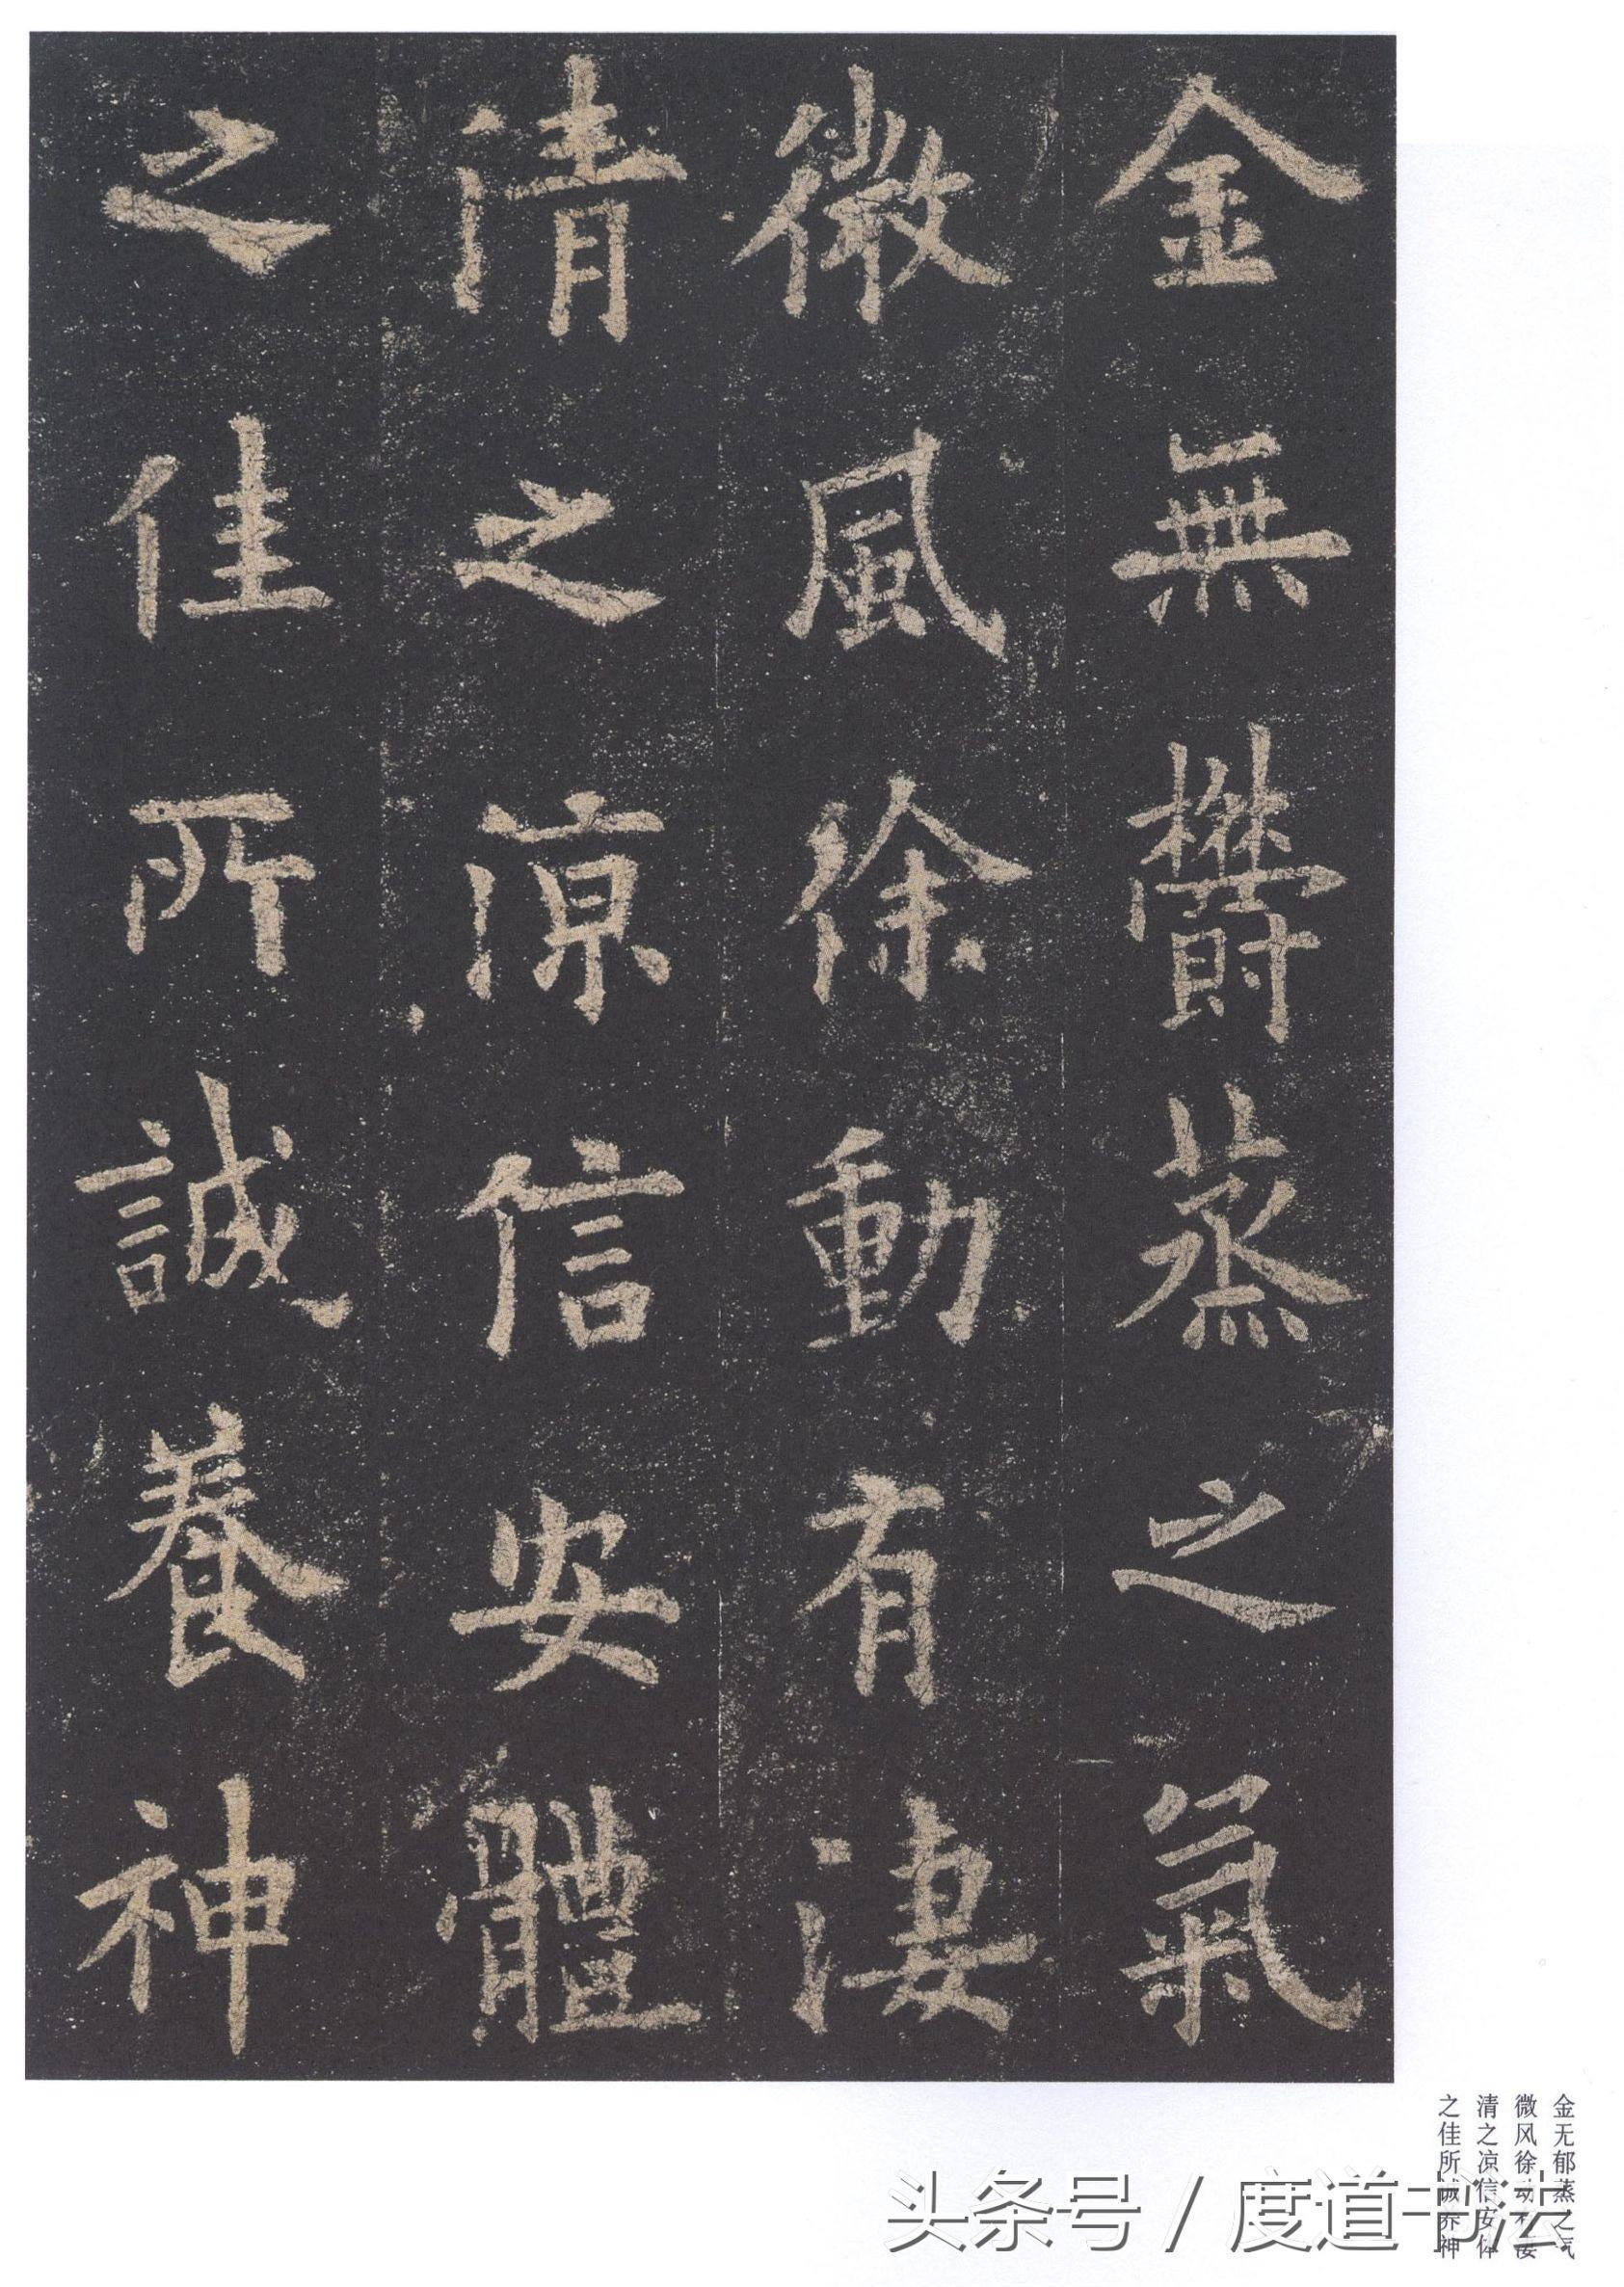 金無欎蒸之氣
微風徐動有淒
清之涼信安體
之佳所誠養神
金无郁蒸之气
微风徐动有凄
清之凉信安体
之佳所诚养神
头条号 / 度道书法